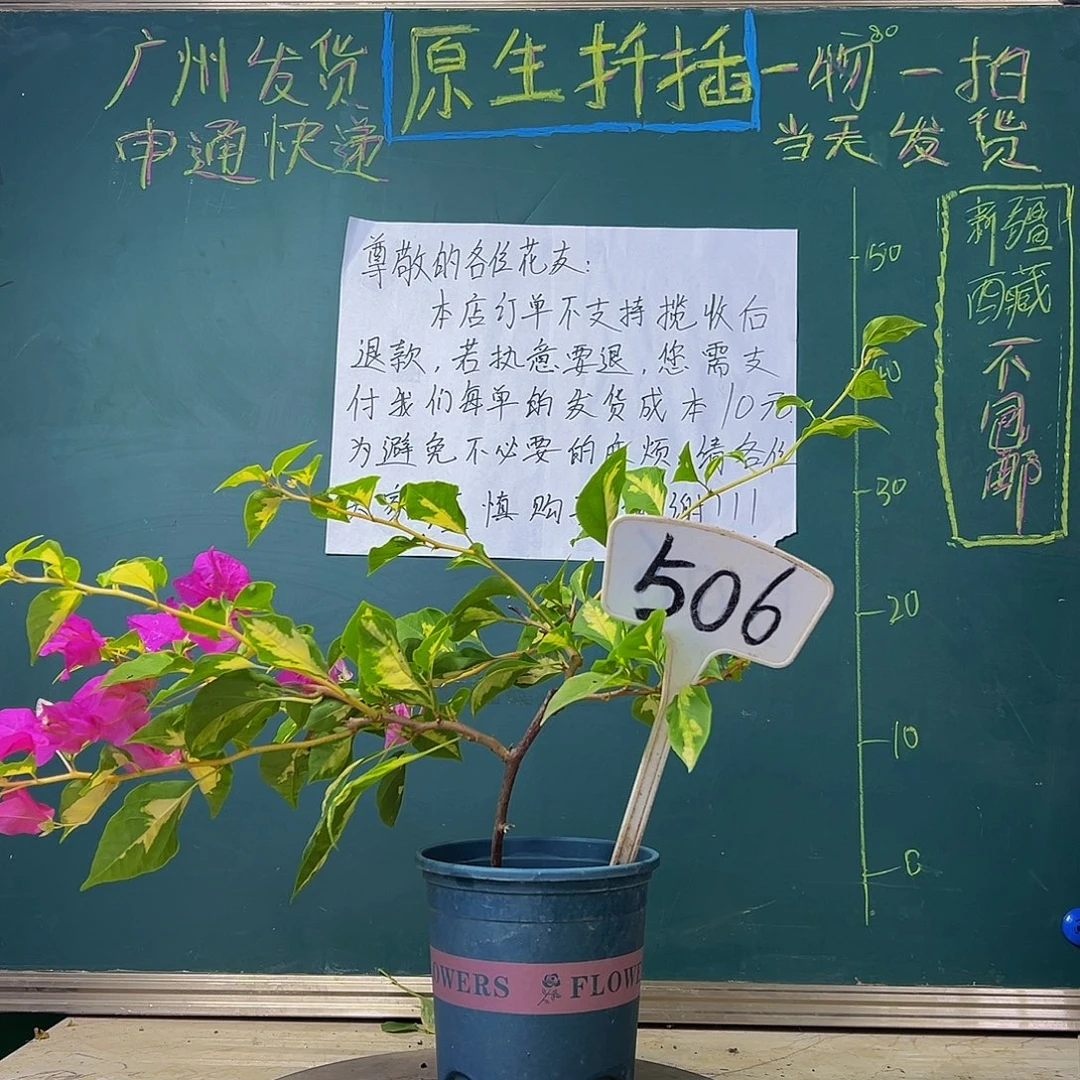 广州发货
申通快递
原生扦插
一物一拍
80
当天发货
新疆
西藏
不
同
邮
50
40
30
20
10
0
尊敬的各位花友:
本店订单不支持揽收后
退款,若执意要退,您需支
付我们每单的发货成本10元
为避免不必要的麻烦,请各位
慎购 谢!!!
506
OWERS FLOWE